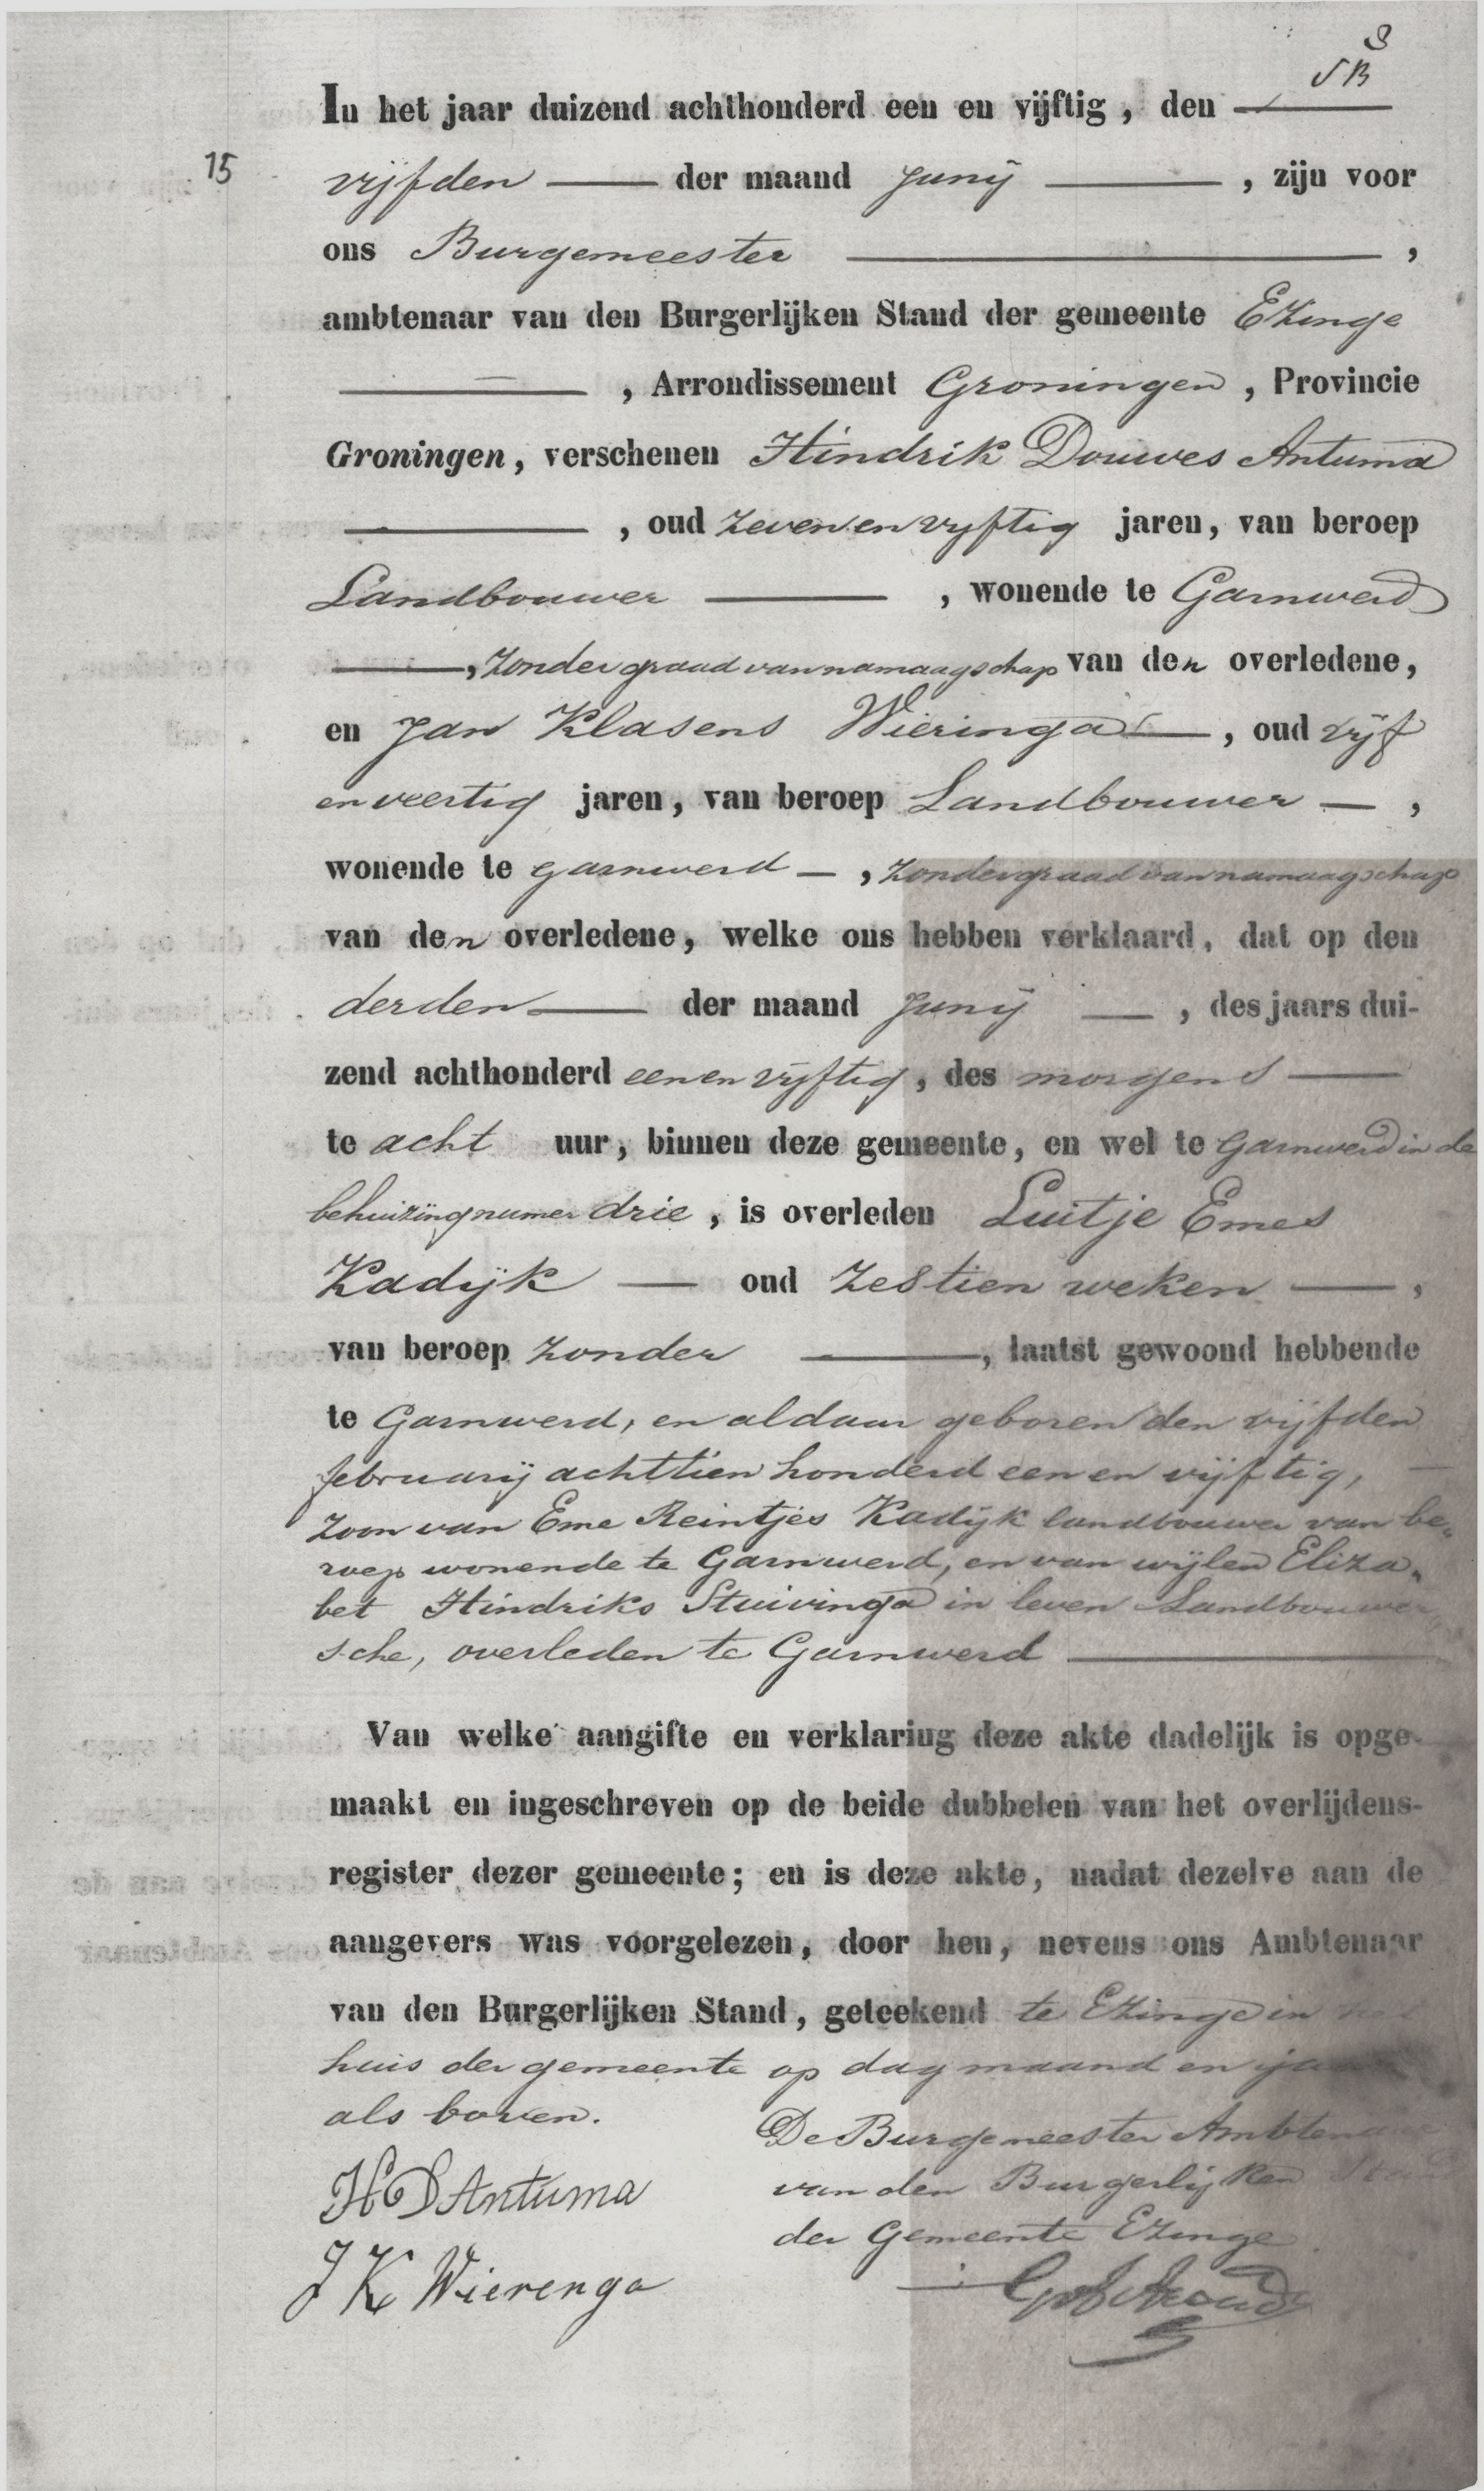 8
In het jaar duizend achthonderd een en vijftig, den
15
vijfden der maand Junij, zijn voor
ons Burgemeester,
ambtenaar van den Burgerlijken Stand der gemeente Ezinge
, Arrondissement Groningen, Provincie
Groningen, verschenen Hindrik Douwes Antuma
, oud zeven en vyftig jaren, van beroep
Landbouwer, wonende te Garnwerd
, zonder graad van namaagschap van den overledene,
en Jan Klasens Wieringa, oud vijf
en veertig jaren, van beroep Landbouwer,
wonende te garnwerd, zonder graad van namaagschap
van den overledene, welke ons hebben verklaard, dat op den
derden der maand Junij, des jaars dui-
zend achthonderd een en vyftig, des morgens
te acht uur, binnen deze gemeente, en wel te Garnwerd in de
behuizing numer drie, is overleden Luitje Emes
Kadijk oud zestien weken,
van beroep zonder, laatst gewoond hebbende
te Garnwerd, en aldaar geboren den vijfden
februarij achttien honderd een en vijftig,
zoon van Eme Reintjes Kadijk landbouwer van be-
roep wonende te Garnwerd, en van wijlen Eliza-
bet Hindriks Stuivinga in leven Landbouwer
sche, overleden te Garnwerd
Van welke aangifte en verklaring deze akte dadelijk is opge-
maakt en ingeschreven op de beide dubbelen van het overlijdens-
register dezer gemeente; en is deze akte, nadat dezelve aan de
aangevers was voorgelezen, door hen, nevens ons Ambtenaar
van den Burgerlijken Stand, geteekend te Ezinge in het
huis der gemeente op dag maand en jaar
als boven.
De Burgemeester Ambtenaar
van den Burgerlijken Stand
der Gemeente Ezinge
HD Antuma
J K Wierenga